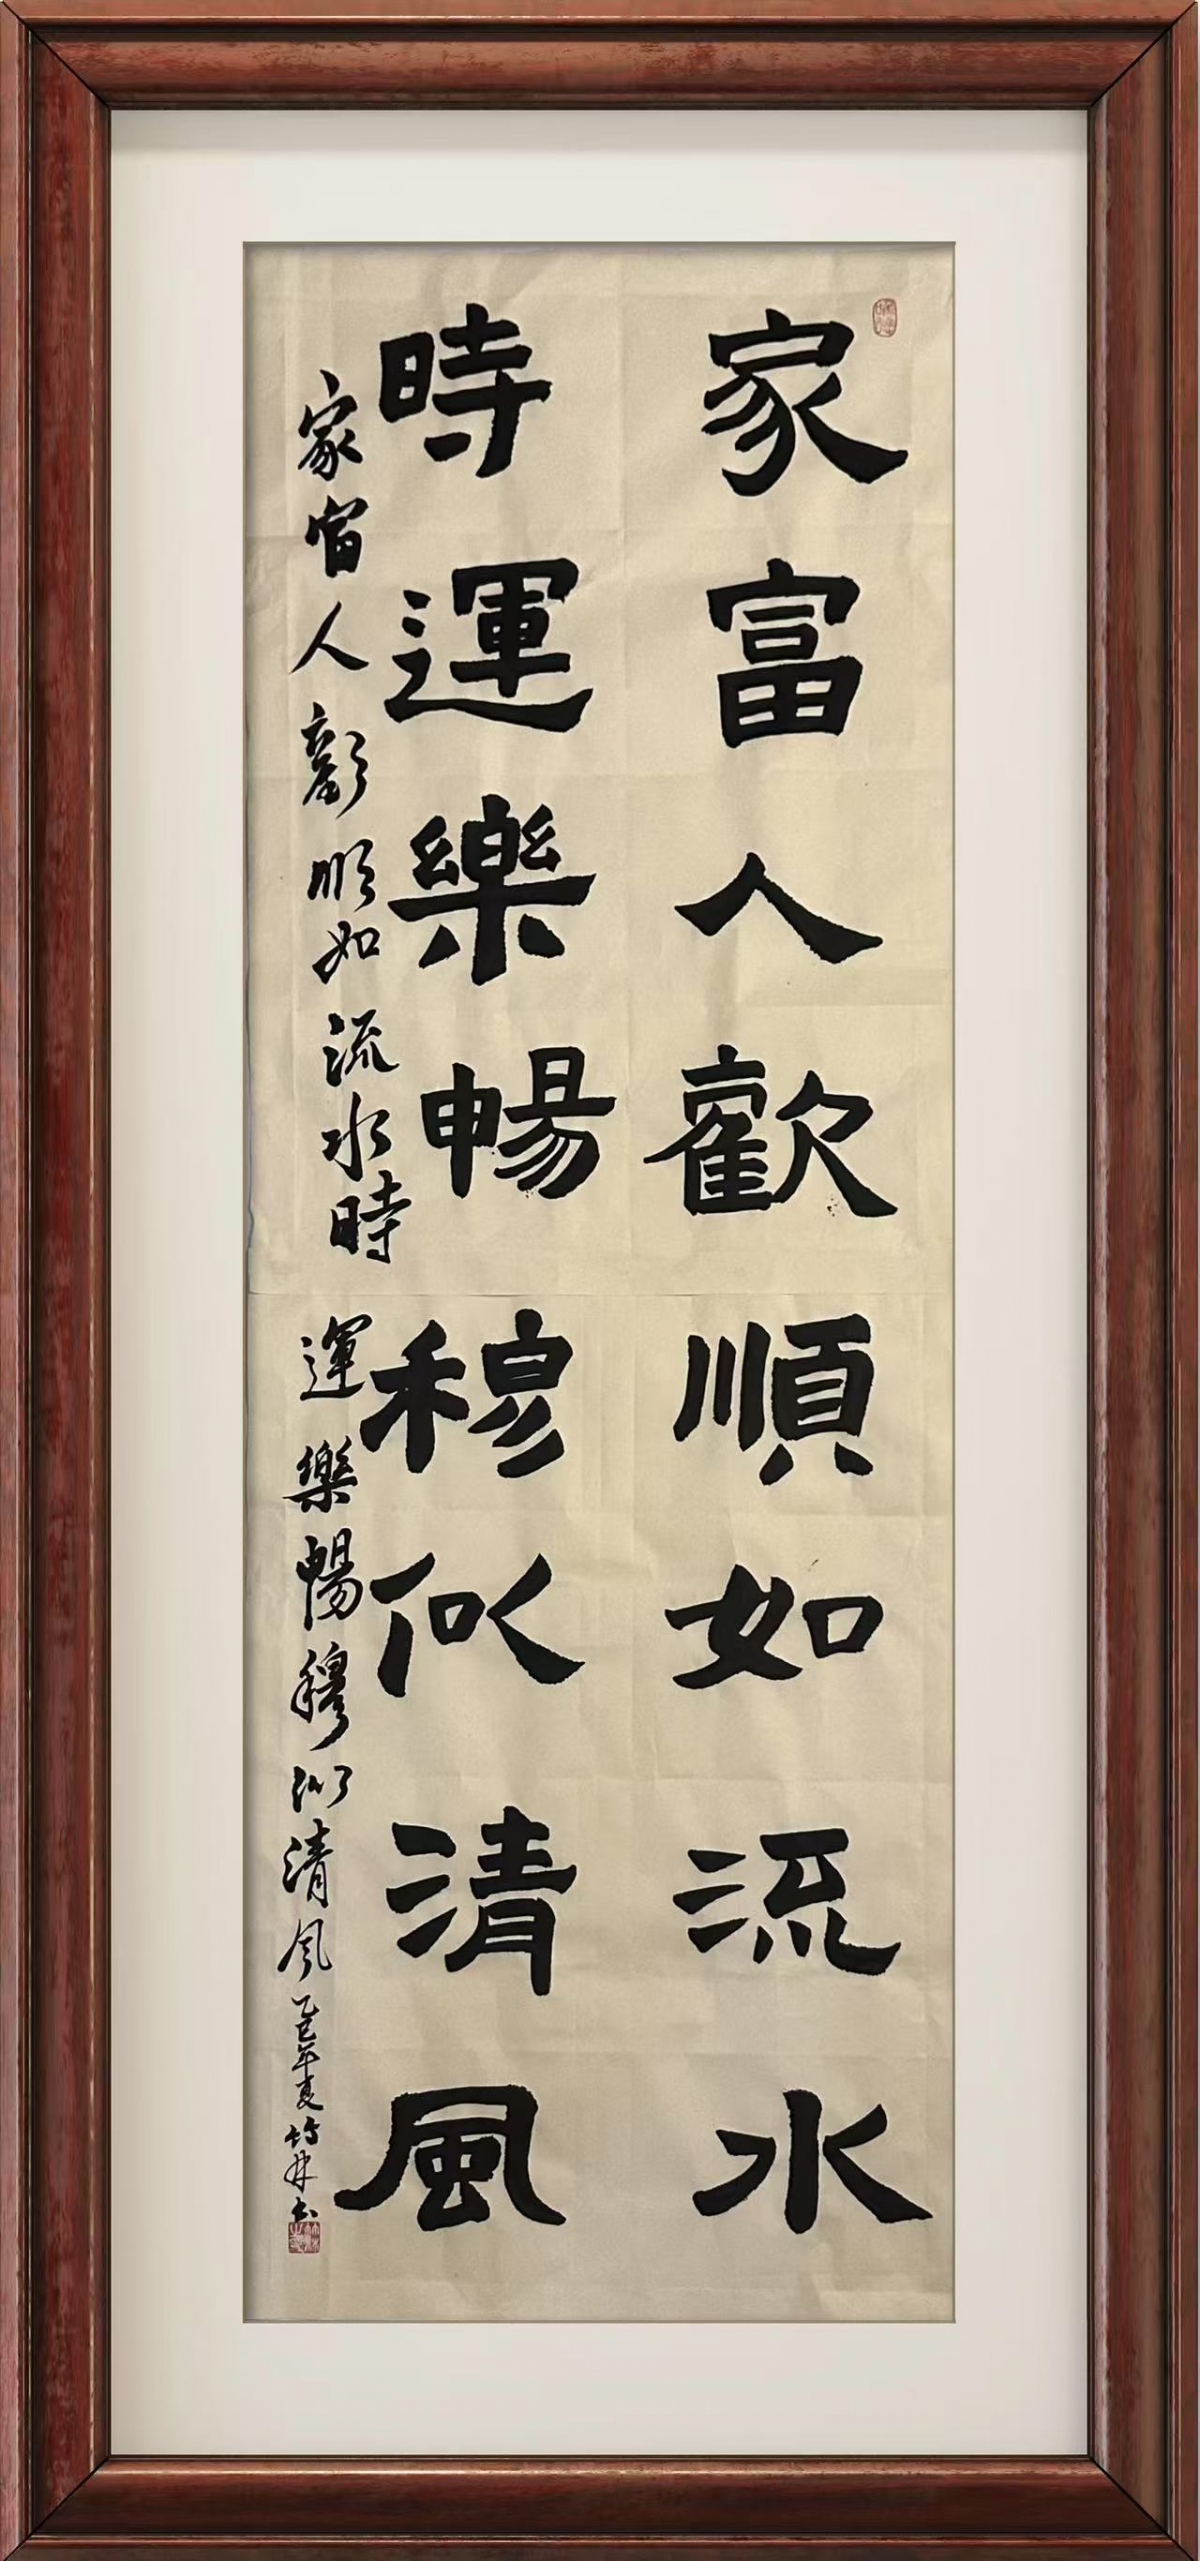 家富人歡順如流水
時運樂暢穆似清風
家富人歡順如流水時運樂暢穆似清風乙巳年夏竹林书